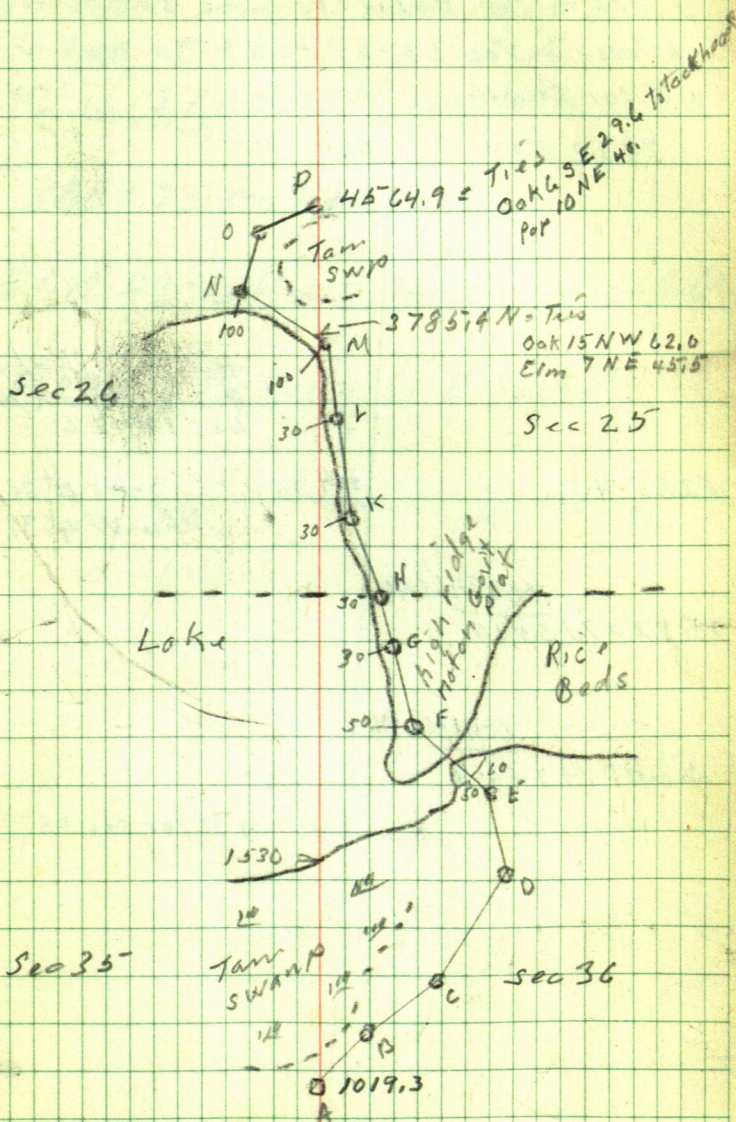 P
4564.9 =
Ties
Oak 6 SE 29.6 to stockhead
Pop 10 NE 40.
O
Tam
SWP
N
100
3785.4 N = Ties
M
Oak 15 NW 62.0
Elm 7 NE 45.5
100
Sec 26
L
30
Sec 25
K
30
high ridge
not on Gov't
Plat
H
30
Lake
G
30
Rice
Beds
F
50
60
50
E
1530
D
Sec 35
Tam
Swamp
Sec 36
C
B
1019.3
A